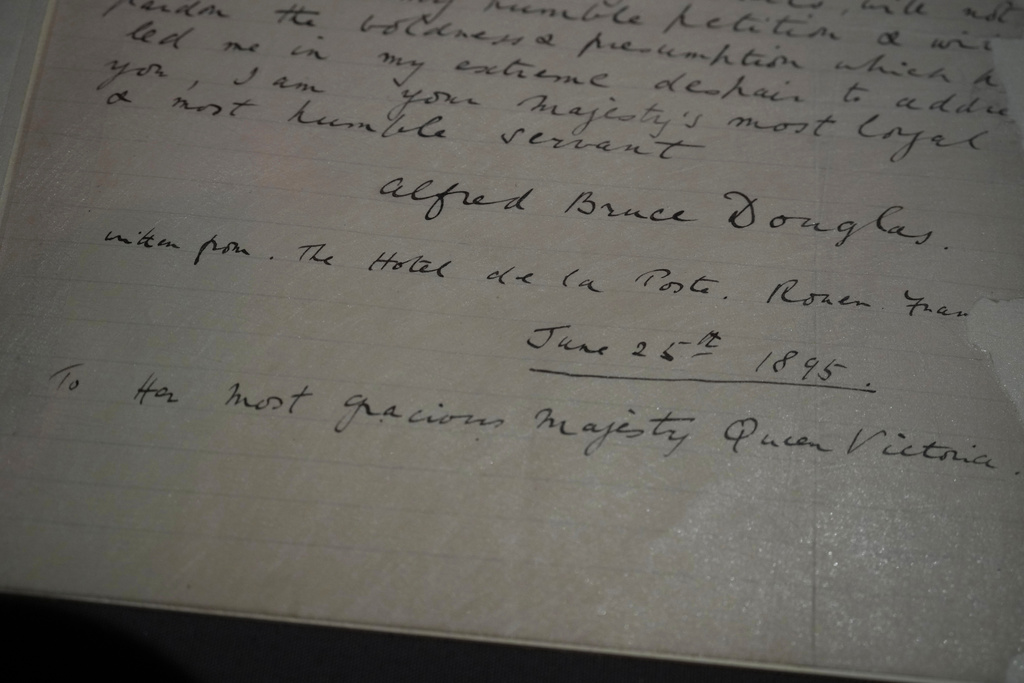 humble petition & will not
pardon the boldness & presumption which
led me in my extreme despair to
you, I am your Majesty's most loyal
& most humble servant
Alfred Bruce Douglas.
written from. The Hotel de la Poste. Rouen
June 25th 1895.
To Her Most gracious Majesty Queen Victoria.